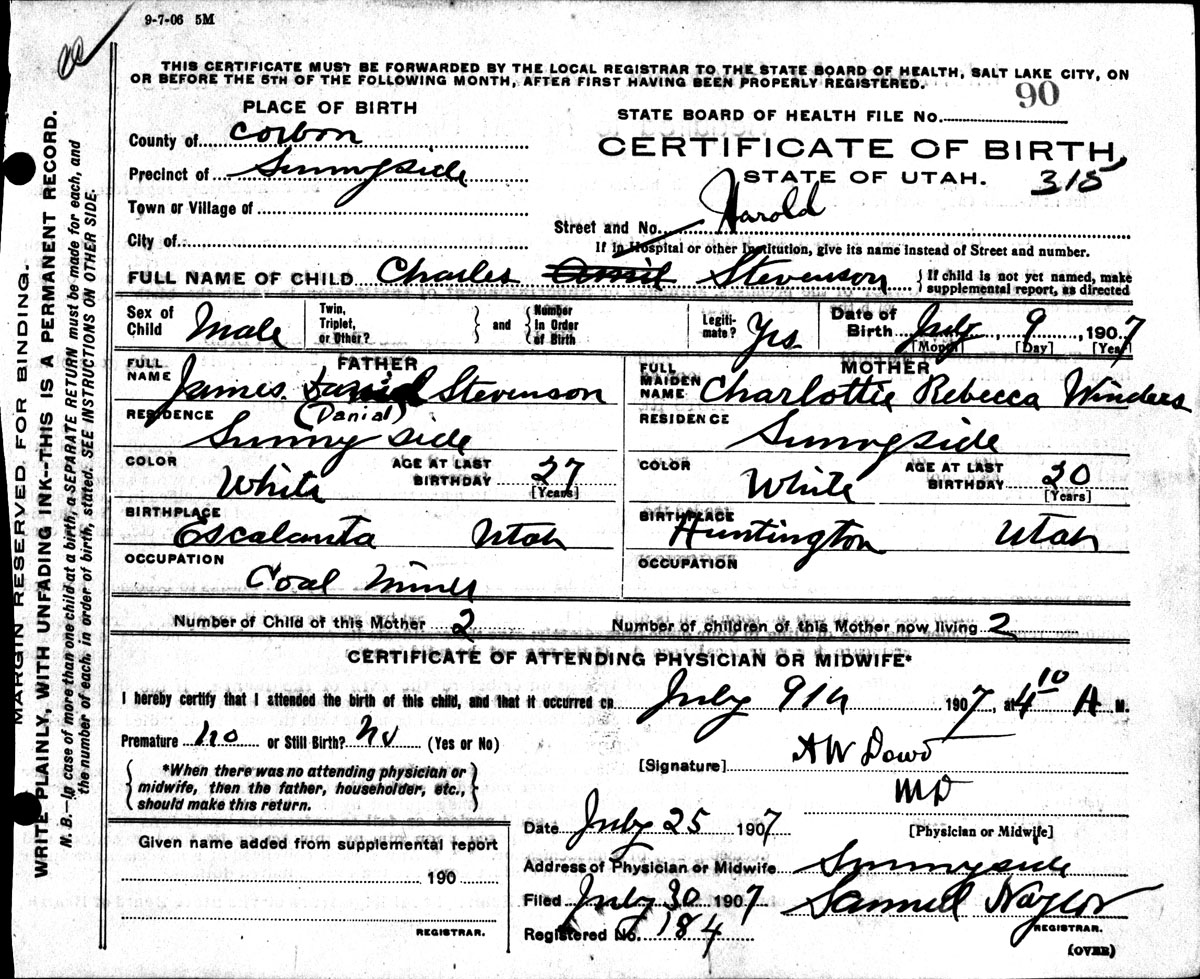 9-7-06 5M
THIS CERTIFICATE MUST BE FORWARDED BY THE LOCAL REGISTRAR TO THE STATE BOARD OF HEALTH, SALT LAKE CITY, ON
OR BEFORE THE 5TH OF THE FOLLOWING MONTH, AFTER FIRST HAVING BEEN PROPERLY REGISTERED.
90
PLACE OF BIRTH
STATE BOARD OF HEALTH FILE No.
County of Corbon
CERTIFICATE OF BIRTH,
Precinct of Sunnyside
STATE OF UTAH. 315
Town or Village of
Harold
Street and No.
City of
If in Hospital or other Institution, give its name instead of Street and number.
FULL NAME OF CHILD Charles Stevenson { If child is not yet named, make
supplemental report, as directed
Sex of Child Male
Twin, Triplet, or Other? } and { Number in Order of Birth
Legiti-mate? Yes
Date of Birth July 9, 1907
[Month] [Day] [Year]
FATHER
FULL NAME James Danial Stevenson
(Danial)
RESIDENCE Sunnyside
COLOR White AGE AT LAST BIRTHDAY 27
[Years]
BIRTHPLACE Escalanta Utah
OCCUPATION Coal Miner
MOTHER
FULL MAIDEN NAME Charlottie Rebecca Winders
RESIDENCE Sunnyside
COLOR White AGE AT LAST BIRTHDAY 20
[Years]
BIRTHPLACE Huntington Utah
OCCUPATION
Number of Child of this Mother 2 Number of children of this Mother now living 2
CERTIFICATE OF ATTENDING PHYSICIAN OR MIDWIFE*
I hereby certify that I attended the birth of this child, and that it occurred on July 9th 1907, at 4 10 A M.
Premature no or Still Birth? no (Yes or No)
[Signature] A W Dowd
M D
{ *When there was no attending physician or
midwife, then the father, householder, etc.,
should make this return. }
Date July 25 1907 [Physician or Midwife]
Given name added from supplemental report
190
REGISTRAR.
Address of Physician or Midwife Sunnyside
Filed July 30 1907 Samuel Naylor
REGISTRAR.
Registered No. 184
(OVER)
MARGIN RESERVED FOR BINDING.
WRITE PLAINLY, WITH UNFADING INK--THIS IS A PERMANENT RECORD.
N. B.—In case of more than one child at a birth, a SEPARATE RETURN must be made for each, and
the number of each, in order of birth, stated. SEE INSTRUCTIONS ON OTHER SIDE.